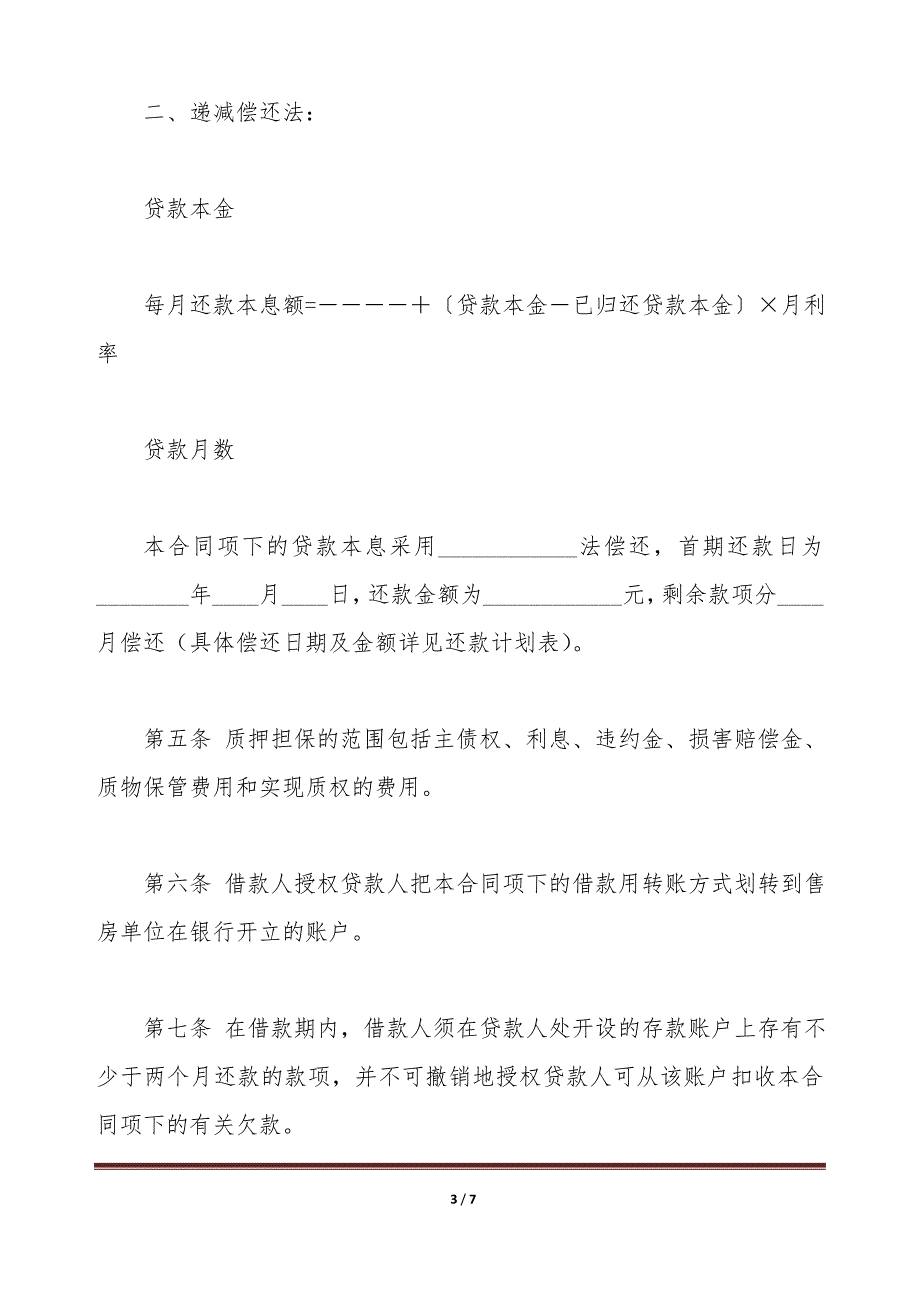 二、递减偿还法：
贷款本金
每月还款本息额=－－－－＋〔贷款本金－已归还贷款本金〕×月利
率
贷款月数
本合同项下的贷款本息采用____________法偿还，首期还款日为
________年____月____日，还款金额为____________元，剩余款项分____
月偿还（具体偿还日期及金额详见还款计划表）。
第五条 质押担保的范围包括主债权、利息、违约金、损害赔偿金、
质物保管费用和实现质权的费用。
第六条 借款人授权贷款人把本合同项下的借款用转账方式划转到售
房单位在银行开立的账户。
第七条 在借款期内，借款人须在贷款人处开设的存款账户上存有不
少于两个月还款的款项，并不可撤销地授权贷款人可从该账户扣收本合
同项下的有关欠款。
3 / 7